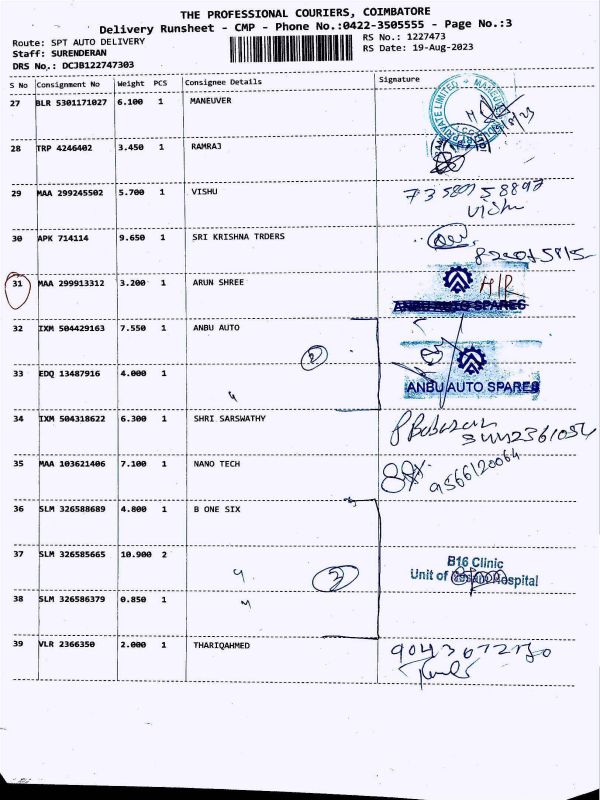 THE PROFESSIONAL COURIERS, COIMBATORE
Delivery Runsheet - CMP - Phone No.:0422-3505555 - Page No.:3
Route: SPT AUTO DELIVERY RS No.: 1227473
Staff: SURENDERAN RS Date: 19-Aug-2023
DRS No.: DCJB122747303
S No Consignment No Weight PCS Consignee Details Signature
27 BLR 5301171027 6.100 1 MANEUVER
28 TRP 4246402 3.450 1 RAMRAJ
29 MAA 299245502 5.700 1 VISHU
Vishu
30 APK 714114 9.650 1 SRI KRISHNA TRDERS
31 MAA 299913312 3.200 1 ARUN SHREE H/R
ANBU AUTO SPARES
32 IXM 504429163 7.550 1 ANBU AUTO
2
33 EDQ 13487916 4.000 1 ANBU AUTO SPARES
34 IXM 504318622 6.300 1 SHRI SARSWATHY
35 MAA 103621406 7.100 1 NANO TECH
9566120064
36 SLM 326588689 4.800 1 B ONE SIX
37 SLM 326585665 10.900 2 B16 Clinic
3 Unit of Hospital
38 SLM 326586379 0.850 1
39 VLR 2366350 2.000 1 THARIQAHMED